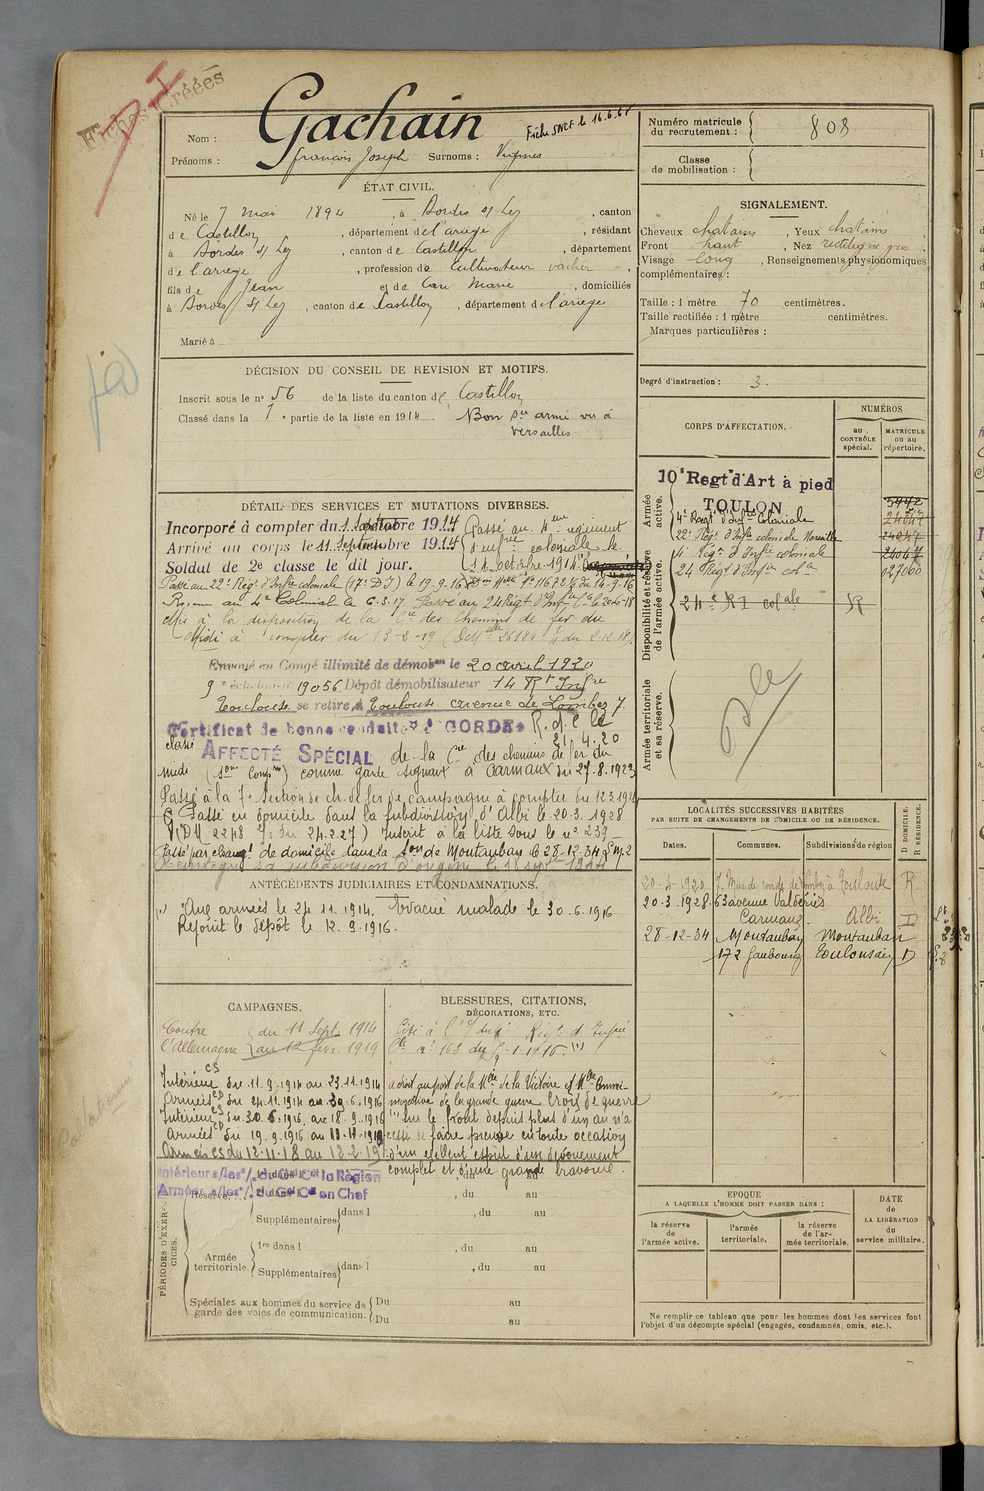 Fiches Créées
Nom : Gachain
Fiche SNCF le 16.6.61
Prénoms : François Joseph Surnoms :
ÉTAT CIVIL.
Né le 7 mai 1894, à Bordes s/ Lez, canton
de Castillon, département de l'ariège, résidant
à Bordes s/ Lez, canton de Castillon, département
de l'ariège, profession de cultivateur vacher,
fils de Jean et de Marie, domiciliés
à Bordes s/ Lez, canton de Castillon, département de l'ariège
Marié à
DÉCISION DU CONSEIL DE REVISION ET MOTIFS.
Inscrit sous le n° 56 de la liste du canton de Castillon
Classé dans la 1e partie de la liste en 1914. Bon sce armé vu à
Versailles
DÉTAIL DES SERVICES ET MUTATIONS DIVERSES.
Incorporé à compter du 1914 Passé au 4eme régiment
Arrivé au corps le 11 Septembre 1914 d'infrie coloniale le
Soldat de 2e classe le dit jour. 11 octobre 1914
Passé au 22e Régt d'Infie coloniale (17e DI) le 19-9-16
Revenu au 4e Colonial le 6-3-17. Passé au 24 Régt d'Inf Cle le
Mis à la disposition de la Cie des Chemins de fer du
Midi à compter du 13-2-19
Envoyé en Congé illimité de démobon le 20 avril 1920
9e échelon n° 19056 Dépôt démobilisateur 14 Rt Infie
Toulouse se retire à Toulouse caserne de Lombez 7
Certificat de bonne conduite ACCORDÉ R.d.C le
21.4.20
classé AFFECTÉ SPÉCIAL de la Cie des chemins de fer du
midi comme garde signaux à Carmaux du 27.8.1923
Passé à la 7e Section de ch. de fer de campagne à compter du 12.3.1924
Passé en domicile dans la subdivision d'Albi le 20.3.1928
(DM 2248 du 24.2.27) Inscrit à la liste sous le n° 239
Passé par changt de domicile dans la Son de Montauban le 28-12-34
ANTÉCÉDENTS JUDICIAIRES ET CONDAMNATIONS.
Aux armées le 24 11.1914. Evacué malade le 30.6.1916
Rejoint le dépôt le 12.9.1916.
CAMPAGNES.
Contre du 11 Sept. 1914
l'Allemagne au 12 févr. 1919
Intérieur CS du 11.9.1914 au 23.11.1914
Armées CD du 24.11.1914 au 30.6.1916
Intérieur CS du 30.6.1916 au 18.9.1916
Armées CD du 19.9.1916 au 11-11-1918
Armées CS du 12.11.18 au 12-2-19
Intérieur s/les o/. du Gal Ct la Région
Armées s/les o/. du Gal Ct en Chef
BLESSURES, CITATIONS,
DÉCORATIONS, ETC.
Cité à l'o/ du 4e Régt d'Infie
Cle n° 168 du
a droit au port de la Mlle de la Victoire et Mlle Commé-
morative de la grande guerre Croix de guerre
"sur le front depuis plus d'un an n'a
cessé de faire preuve en toute occasion
d'un excellent esprit d'un dévouement
complet et d'une grande bravoure.
PÉRIODES D'EXERCICES.
Réserve
, du au
, du au
Supplémentaires dans l , du au
Armée territoriale
1re dans l , du au
Supplémentaires dans l , du au
Spéciales aux hommes du service de
garde des voies de communication.
Du au
Du au
Numéro matricule
du recrutement : 808
Classe
de mobilisation :
SIGNALEMENT.
Cheveux chatains, Yeux chatains,
Front haut, Nez rectiligne gros,
Visage long, Renseignements physionomiques
complémentaires :
Taille : 1 mètre 70 centimètres.
Taille rectifiée : 1 mètre centimètres.
Marques particulières :
Degré d'instruction : 3.
CORPS D'AFFECTATION.
NUMÉROS
au CONTRÔLE spécial.
MATRICULE ou au répertoire.
Armée active.
10e Regt d'Art à pied
TOULON
4e Régt d'Infie Coloniale
22e Régt d'Infie coloniale Marseille
4e Régt d'Infie coloniale
24 Régt d'Infie cole
Disponibilité et réserve de l'armée active.
24e RI colale
Armée territoriale et sa réserve.
LOCALITÉS SUCCESSIVES HABITÉES
PAR SUITE DE CHANGEMENTS DE DOMICILE OU DE RÉSIDENCE.
Dates. Communes. Subdivisions de région D DOMICILE. R RÉSIDENCE.
20-4-1920 Toulouse R
20.3.1928 63 avenue
Carmaux Albi
28-12-34 Montauban Montauban
172 faubourg Toulousain D
EPOQUE
A LAQUELLE L'HOMME DOIT PASSER DANS :
la réserve de l'armée active.
l'armée territoriale.
la réserve de l'armée territoriale.
DATE de LA LIBÉRATION du service militaire.
Ne remplir ce tableau que pour les hommes dont les services font
l'objet d'un décompte spécial (engagés, condamnés, omis, etc.).